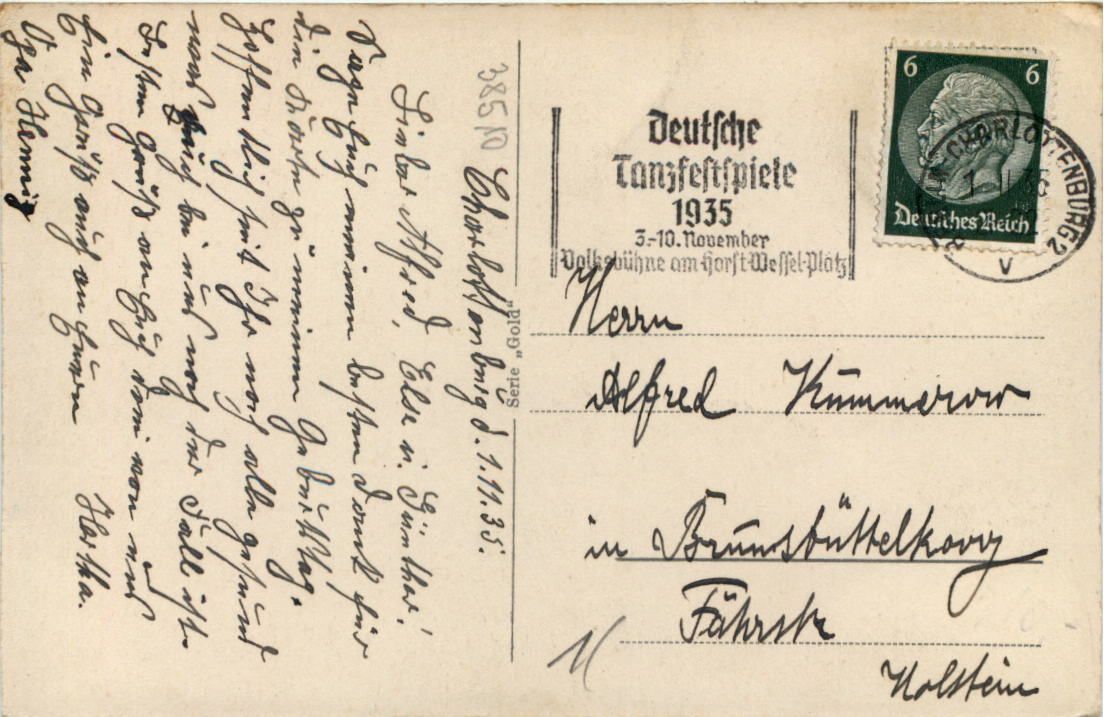 385N
Charlottenburg d. 1.11.35.
Lieber Alfred, Else u. Günther!
Sage Euch meinen besten Dank für
die Karte zu meinem Geburtstag.
Hoffentlich seid Ihr noch alle gesund
was auch bei uns noch der Fall ist.
Besten Gruß an Euch von uns
Ein Gruß auch an Euren
Hertha.
Serie „Gold“
Deutsche
Tanzfestspiele
1935
3.-10. November
Volksbühne am Horst-Wessel-Platz
6 6
Deutsches Reich
CHARLOTTENBURG 2
1 11 35
V
Herrn
Alfred Kummerow
in Brunsbüttelkoog
Fährstr
Holstein